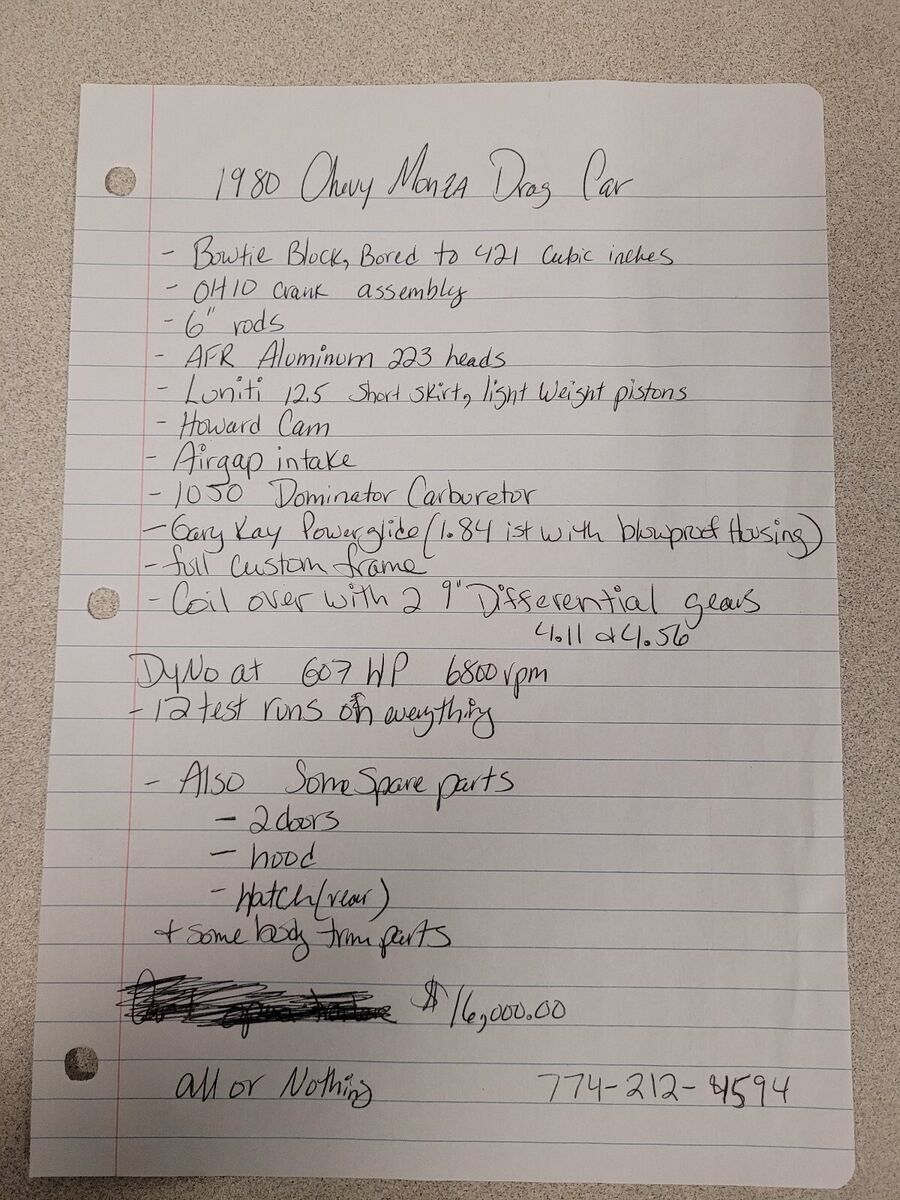 1980 Chevy Monza Drag Car
- Bowtie Block, Bored to 421 Cubic inches
- OHIO crank assembly
- 6" rods
- AFR Aluminum 223 heads
- Luniti 12.5 Short Skirt, light Weight pistons
- Howard Cam
- Airgap intake
- 1050 Dominator Carburetor
- Gary Kay Powerglide (1.84 1st with blowproof Housing)
- full custom frame
- Coil over with 2 9" Differential gears
4.11 & 4.56
DyNo at 607 HP 6800 rpm
- 12 test runs on everything
- Also Some Spare parts
- 2 doors
- hood
- Hatch (rear)
+ some body trim parts
$16,000.00
all or Nothing 774-212-4594